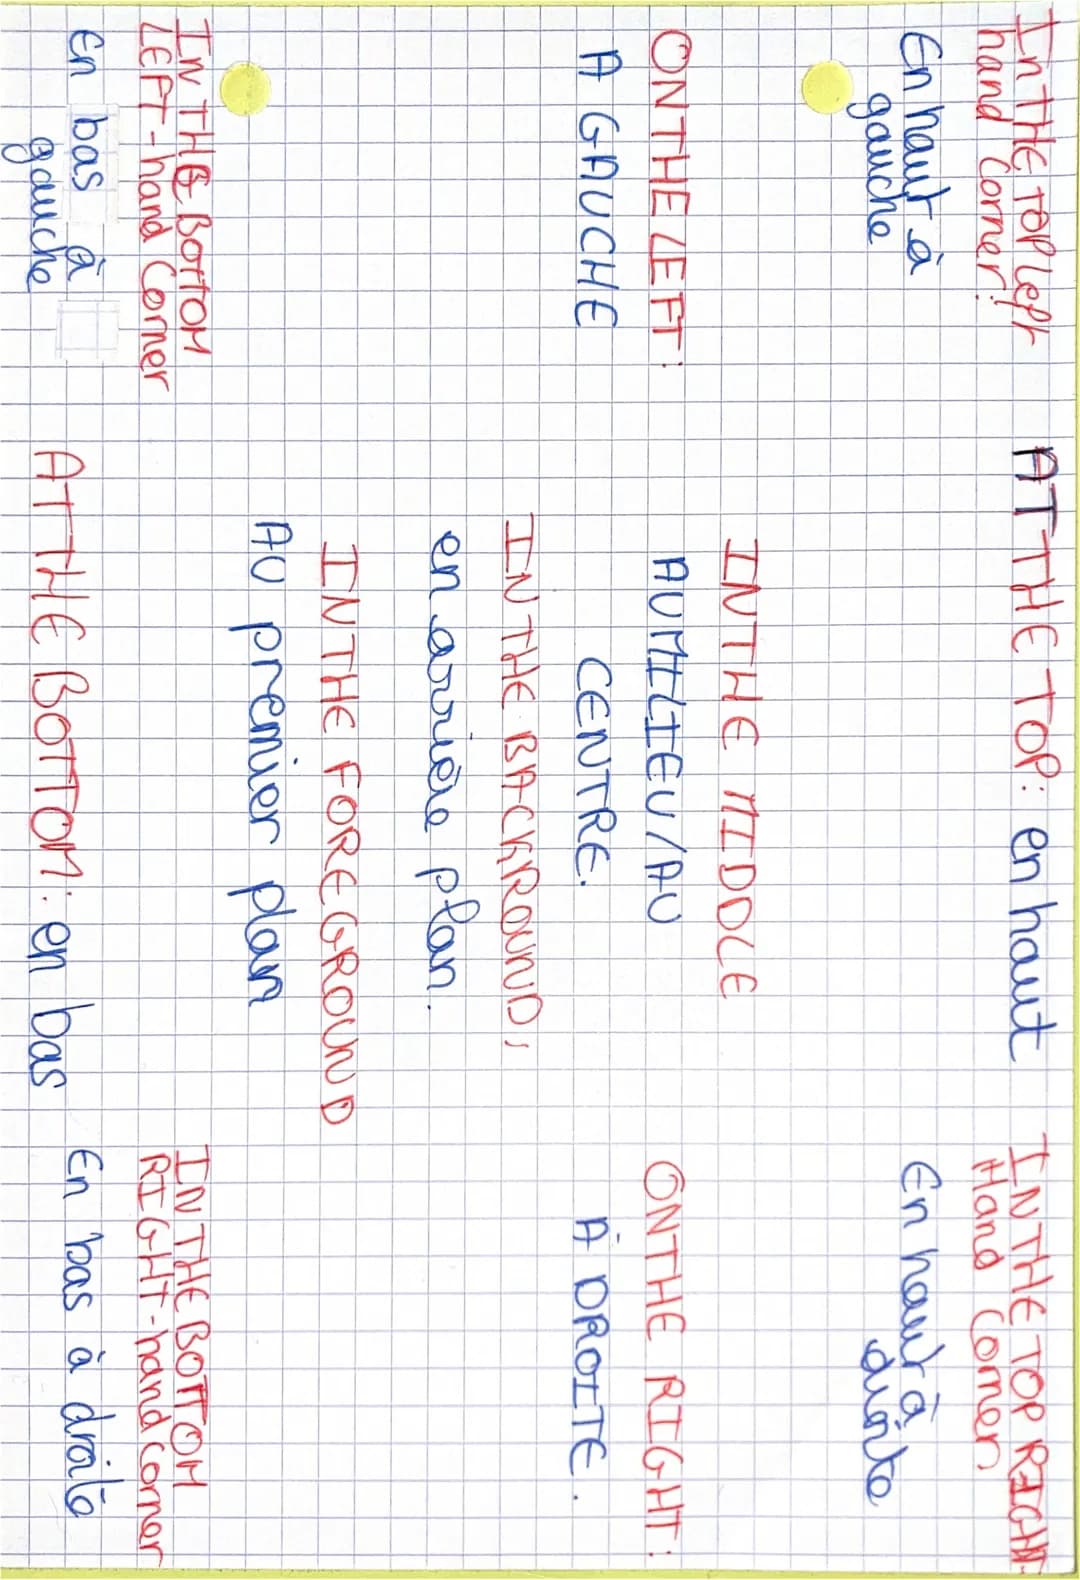 In THE TOP left
hand Corner:
En haut à
gauche
AT THE TOP: en haut
IN THE TOP RIGHT-
Hand Corner,
En haut à
droite
ON THE LEFT:
A GAUCHE
IN THE MIDDLE
AU MILIEU / AU
CENTRE.
ON THE RIGHT:
À DROITE.
IN THE BACKROUND,
en arrière plan.
IN THE FOREGROUND
AU premier plan
IN THE BOTTOM
LEFT-hand Corner
En bas à
gauche
AT THE BOTTOM: en bas
IN THE BOTTOM
RIGHT-hand Corner
En bas à droite